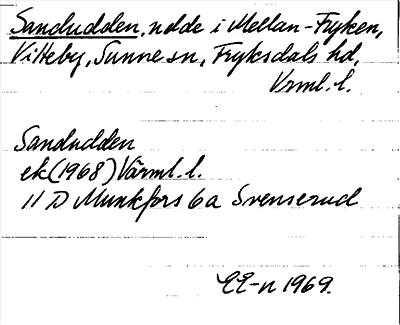 Sandudden, udde i Mellan-Fryken,
Vitteby, Sunne sn, Fryksdals hd,
Vrml. l.
Sandudden
ek (1968) Värml. l.
11 D Munkfors 6a Svenserud
EE-n 1969.